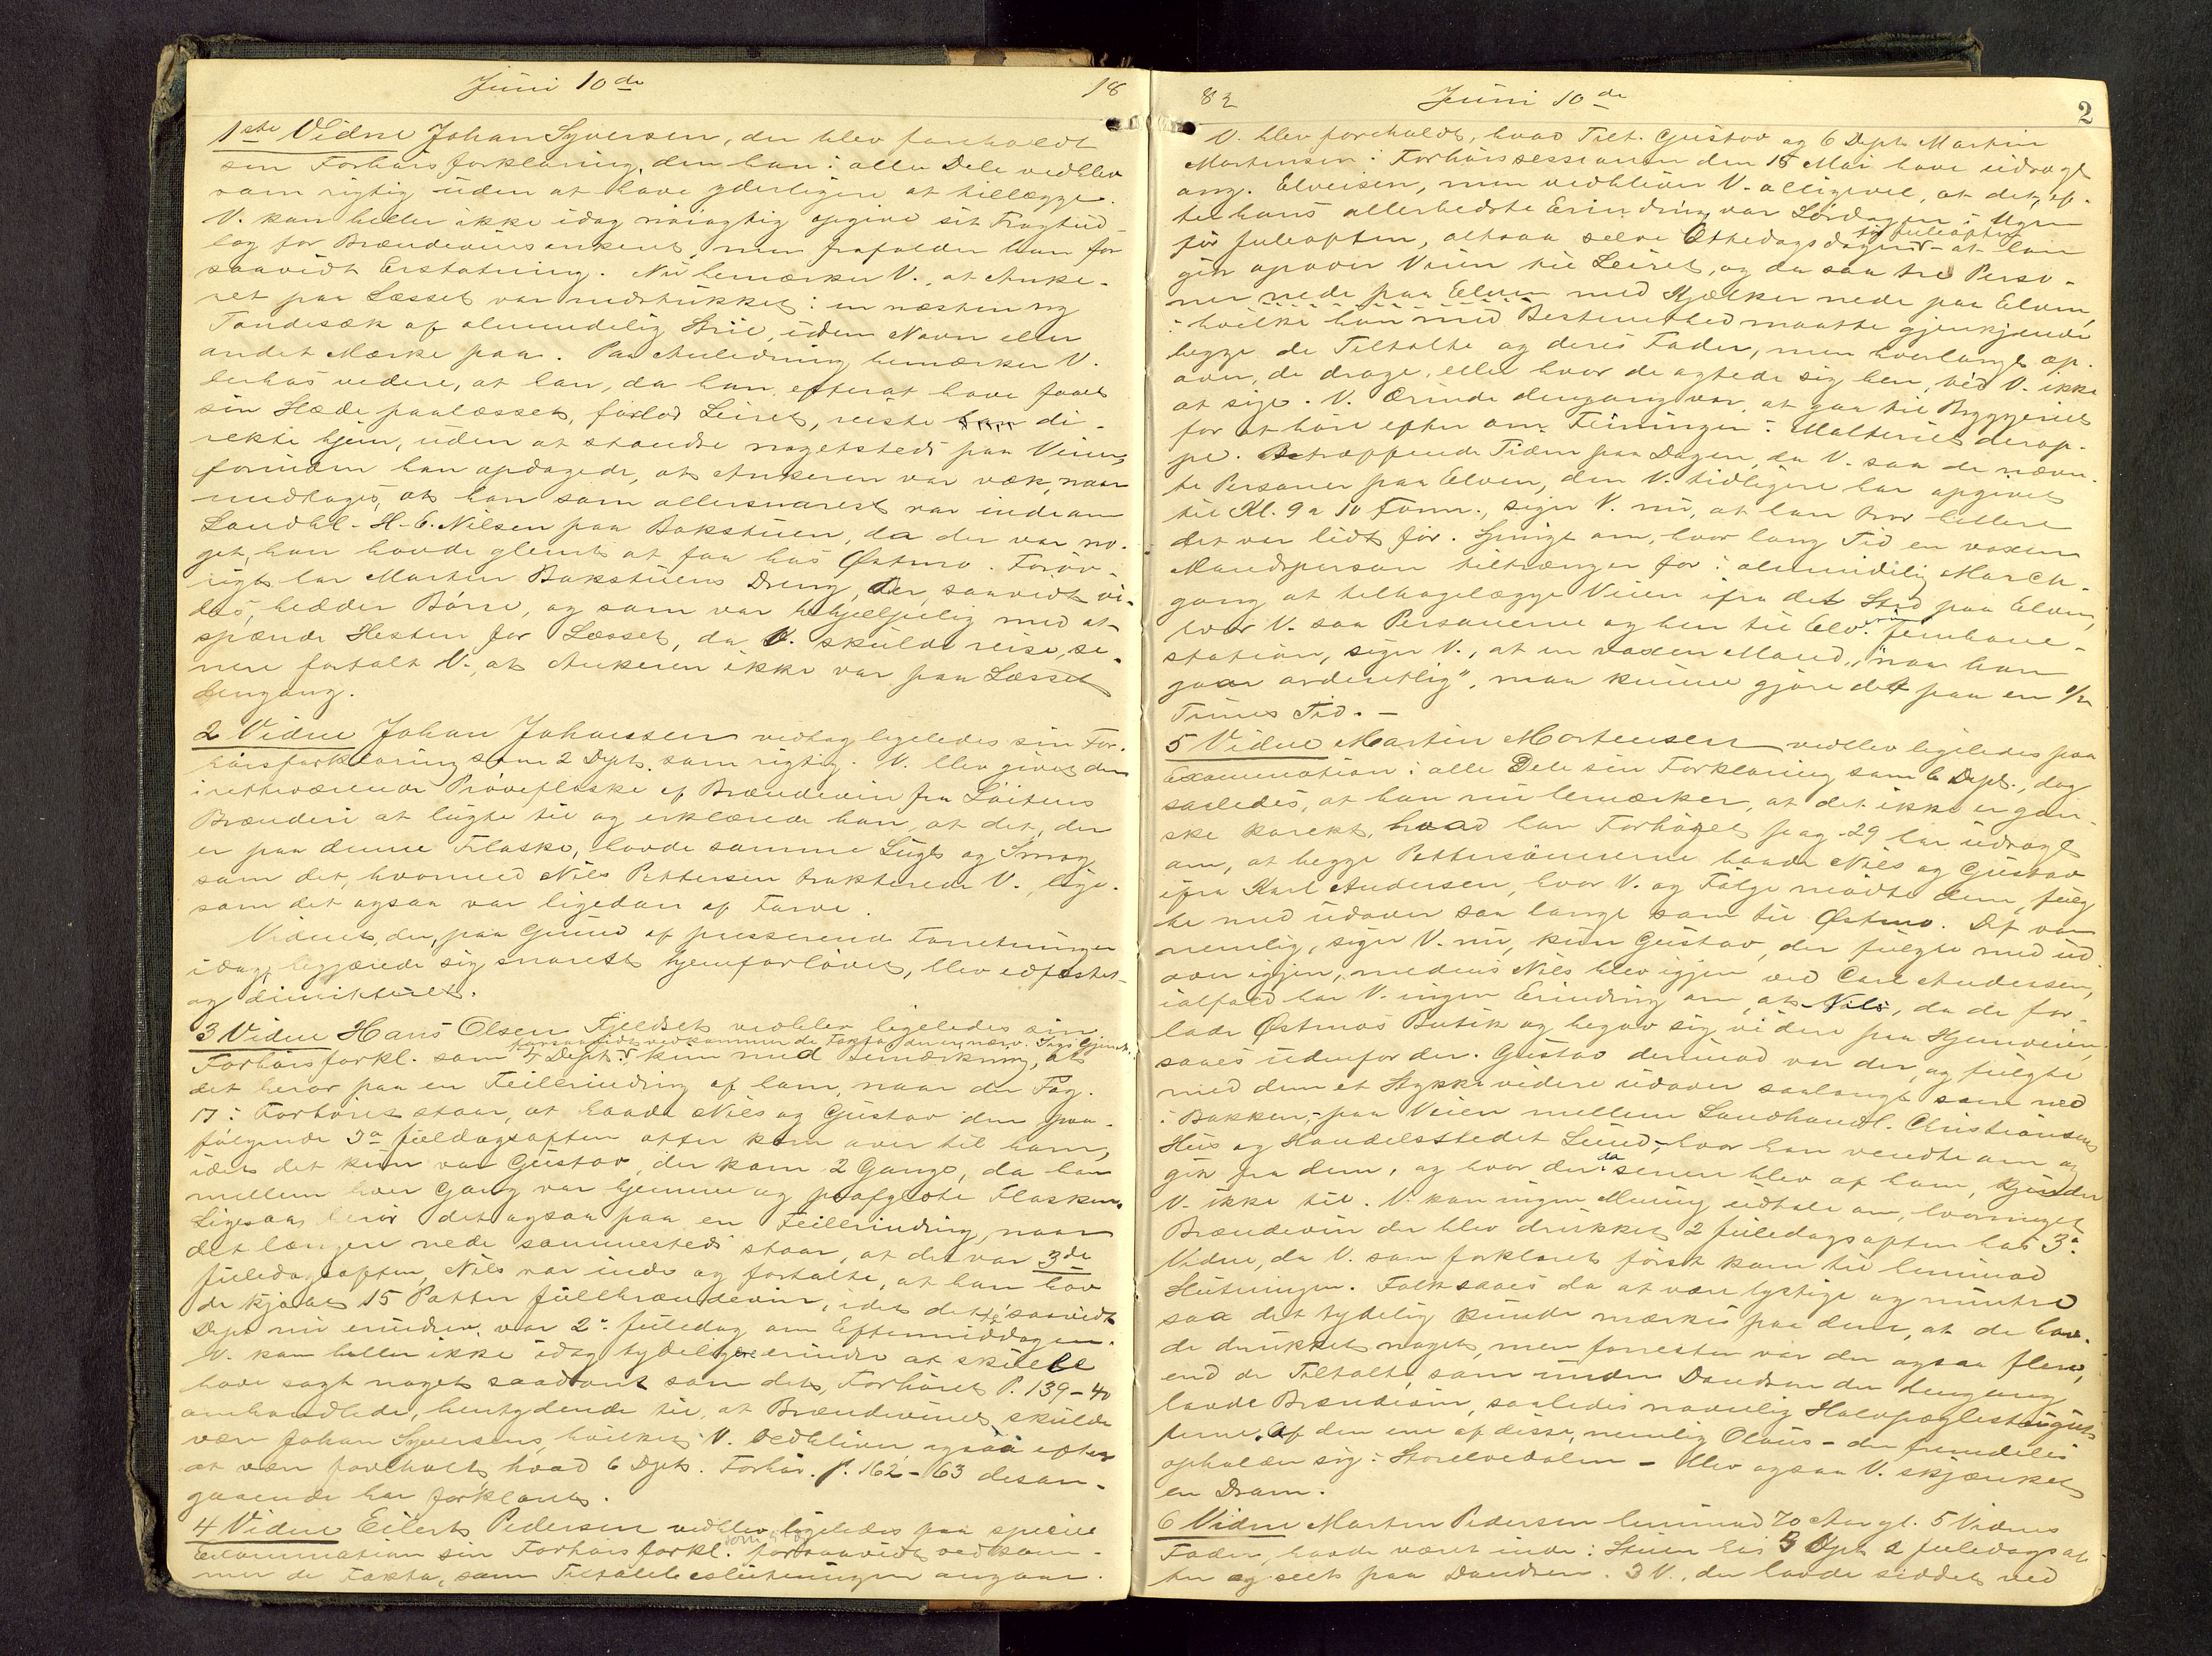 Juni 10de 18
1ste Vidne Johan Syversen, der blev foreholdt
sin Forhørsforklaring, den han i alle Dele vedblev
som rigtig uden at have yderligere at tillægge.
V. kan heller ikke idag nøiagtig opgive sit Fragtud-
læg for Brændevinsankeret, men frafalder han for
saavidt Erstatning. Nu bemærker V., at Anke-
ret paa Læsset var nedstukket i en næsten ny
Tøndesæk af almindelig Strie, uden Navn eller
andet Mærke paa. Paa Anledning bemærker V.
derhos videre, at han, da han efterat have faaet
sin Slæde paalæsset, forlod Leiret, reiste di-
rekte hjem, uden at standse nogetsteds paa Veien,
forinden han opdagede, at Ankeren var væk, naar
undtages, at han som allersnarest var indom
Landhl. H. E. Nilsen paa Bakstuen, da der var no-
get, han havde glemt at faa hos Østmo. Forøv-
rigt har Martin Bakstuens Dreng, der, saavidt vi-
des, hedder Børre, og som var behjelpelig med at
spænde Hesten for Læsset, da V. skulde reise, se-
nere fortalt V., at Ankeren ikke var paa Læsset
dengang.
2 Vidne Johan Johansen vedtog ligeledes sin For-
hørsforklaring som 2 Dept. som rigtig. V. blev givet den
iretteværende Prøveflaske af Brændevin fra Løitens
Brænderi at lugte til og erklærede han, at det, der
er paa denne Flaske, havde samme Lugt og Smag
som det, hvormed Nils Pettersen trakterede V., lige-
som det ogsaa var ligedan af Farve.
Vidnet, der, paa Grund af presserende Forretninger
idag, begjærede sig snarest hjemforlovet, blev edfæstet
og dimitteret.
3 Vidne Hans Olsen Fjeldset vedblev ligeledes sin
Forhørsforkl. som 4 Dept. forsaavidt vedkommer de Fakta der er nærv. Sags Gjenst. kun med Bemærkning, at
det beror paa en Feilerindring af ham, naar der Pag.
17 i Forhøret staar, at baade Nils og Gustav den paa-
følgende 3a Juledagsaften atter kom over til ham,
idet det kun var Gustav, der kom 2 Gange, da han
mellem hver Gang var hjemme og paafyldte Flasken.
Ligesaa berør det ogsaa paa en Feilerindring, naar
det længere nede sammesteds staar, at det var 3de
Juledagsaften, Nils var inde og fortalte, at han hav-
de kjøbt 15 Potter Julebrændevin, idet dette, saavidt
Dept nu erindrer, var 2. Juledag om Eftermiddagen.
V. kan heller ikke idag tydeligere erindre at skulle
have sagt noget saadant som det, Forhøret P. 139-40
omhandlede, hentydende til, at Brændevinet skulde
være Johan Syversens, hvilket V. vedbliver ogsaa efter
at være foreholdt, hvad 6 Dept. Forhør. P. 162-63 desan-
gaaende har forklaret.
4 Vidne Eilert Pedersen vedblev ligeledes paa speciel
Examination sin Forhørsforkl. forsaavidt vedkom-
mer de Fakta, som Tiltalebeslutningen angaar.
82 Juni 10de 2
V. blev foreholdt, hvad Tilt. Gustav og 6 Dept. Martin
Mortensen i Forhørssessionen den 15 Mai have udsagt
ang. Elveisen, men vedbliver V. alligevel, at det, ef-
ter hans allerbedste Erindring var Lørdagen i Ugen
før Juleaften, altsaa selve Ottedagsdagen før Juleaften - at han
gik opover Veien til Leiret, og da saa tre Perso-
ner nede paa Elven med Kjælker nede paa Elven,
i hvilke han med Bestemthed maatte gjenkjende
begge de Tiltalte og deres Fader, men hvorlangt op-
over, de droge, eller hvor de agtede sig hen, ved V. ikke
at sige. V. Ærinde dengang var, at gaa til Bryggeriet
for at høre efter om Feiningen i Malteriet derop-
pe. Betræffende Tiden paa Dagen, da V. saa de nævn-
te Personer paa Elven, den V. tidligere har opgivet
til Kl. 9 a 10 Form., siger V. nu, at han tror hellere
det var lidt før. Spurgt om, hvor lang Tid en voxen
Mandsperson tiltrænger for i almindelig March-
gang at tilbagelægge Veien ifra det Sted paa Elven,
hvor V. saa Personerne og hen til Elverum Jernbane-
station, siger V., at en voxen Mand, "naar han
gaar ordentlig", maa kunne gjøre det paa en 1/2
Times Tid. -
5 Vidne Martin Mortensen vedblev ligeledes paa
Examination i alle Dele sin Forklaring som 6 Dept., dog
saaledes, at han nu bemærker, at det ikke er gan-
ske korekt, hvad han Forhøret pag. 29 har udsagt
om, at begge Pettersønnerne baade Nils og Gustav
ifra Karl Andersen, hvor V. og Følge mødte dem, fulg-
te med udover saa langt som til Østmo. Det var
nemlig, siger V. nu, kun Gustav, der fulgte med ud-
over igjen, medens Nils blev igjen ved Carl Andersen,
ialfald har V. ingen Erindring om, at Nils, da de for-
lode Østmos Butik og begav sig videre paa Hjemveien,
saaes udenfor der. Gustav derimod var der, og fulgte
med dem et Stykke videre udover saalangt som ned
i Bakken, - paa Veien mellem Landhandl. Christiansens
Hus og Handelsstedet Lund, - hvor han vendte om og
gik fra dem, og hvor der da senere blev af ham, kjender
V. ikke til. V. kan ingen Mening udtale om, hvormeget
Brændevin der blev drukket 2 Juledagsaften hos 3.
Vidne, da V. som forklaret først kom til henimod
Slutningen. Folk saaes da at være lystige og muntre
saa det tydelig kunde mærkes paa dem, at de hav-
de drukket noget, men forresten var der ogsaa flere,
end de Tiltalte, som under Dandsen der dengang
havde Brændevin, saaledes navnlig
terne. Af den ene af disse, nemlig Olaus - der fremdeles
opholder sig i Storelvedalen - blev ogsaa V. skjænket
en Dram.
6 Vidne Morten Pedersen henimod 70 Aar gl. 5 Vidnes
Fader, havde været inde i Stuen hos 3 Dept 2 Juledagsaf-
ten og seet paa Dandsen. 3 V., der havde siddet ved